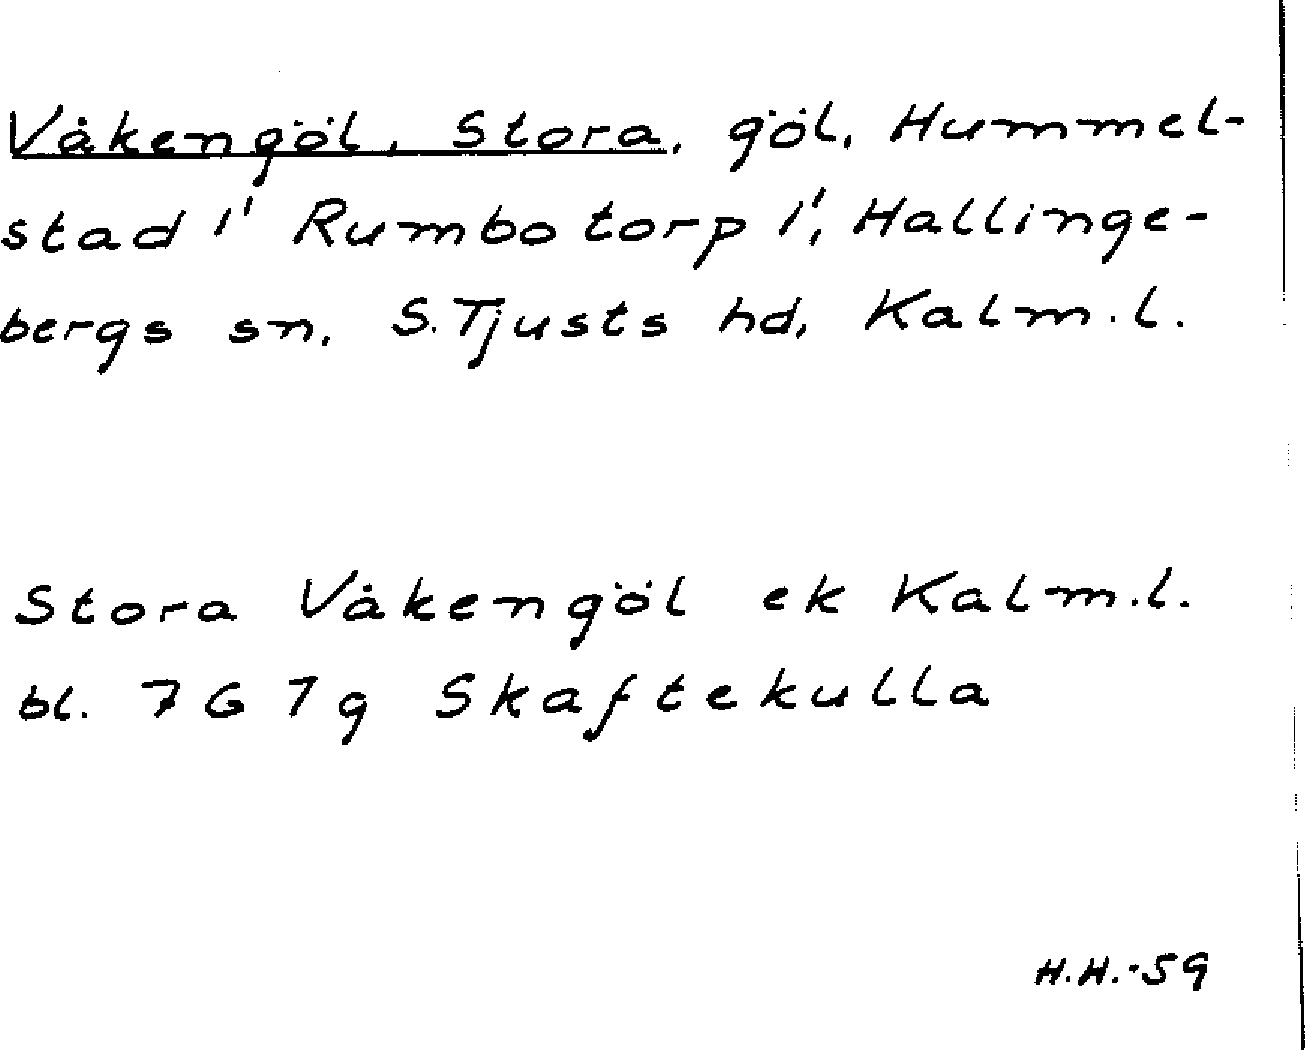 Våkengöl, Stora, göl, Hummel-
stad 1' Rumbotorp 1', Hallinge-
bergs sn, S. Tjusts hd, Kalm.l.
Stora Våkengöl ek Kalm.l.
bl. 7 G 7 g Skaftekulla
H.H.-59